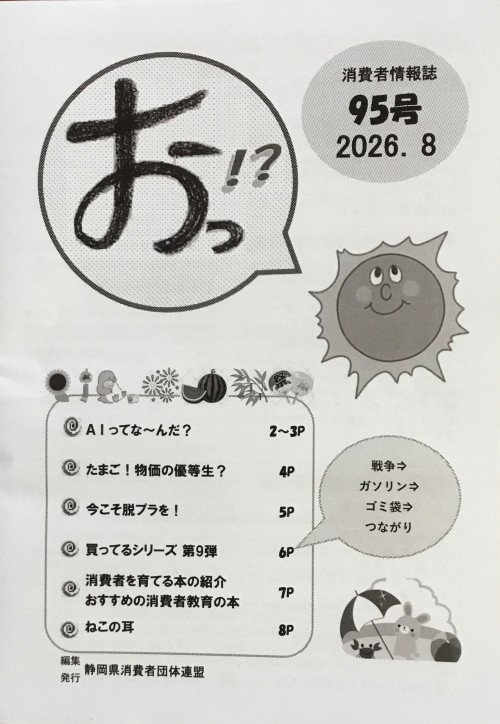 おっ!?
消費者情報誌
95号
2026. 8
祭
AIってな~んだ? 2~3P
たまご!物価の優等生? 4P
今こそ脱プラを! 5P
買ってるシリーズ 第9弾 6P
消費者を育てる本の紹介
おすすめの消費者教育の本 7P
ねこの耳 8P
戦争⇒
ガソリン⇒
ゴミ袋⇒
つながり
編集
発行 静岡県消費者団体連盟